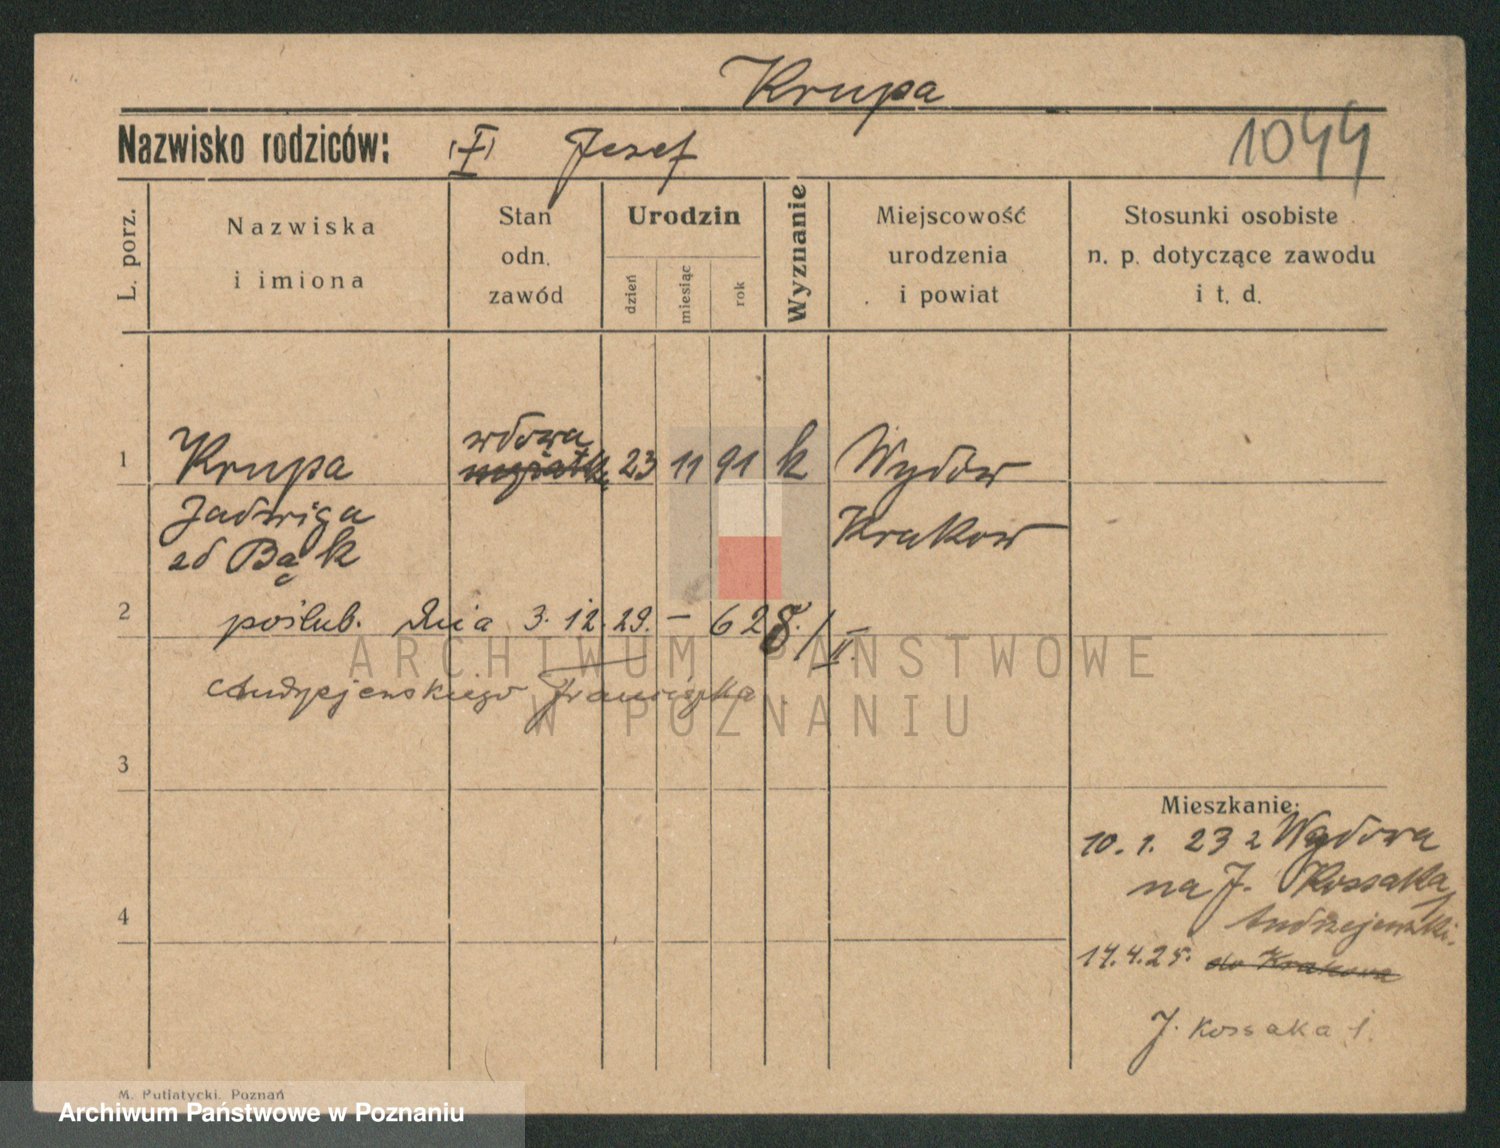 Krupa
Nazwisko rodziców: I Jozef
1044
L. porz.
Nazwiska
i imiona
Stan
odn.
zawód
Urodzin
dzień
miesiąc
rok
Wyznanie
Miejscowość
urodzenia
i powiat
Stosunki osobiste
n. p. dotyczące zawodu
i t. d.
wdowa
1 Krupa 23 11 91 k Wydów
Jadwiga Krakow
zd Bąk
2
poślub. dnia 3.12.29. – 628./II.
Andrzejewskiego Franciszka
3
Mieszkanie:
10. 1. 23 z Wydowa
na J. Kossaka
Andrzejewski.
4
17.4.25. do Krakowa
J. Kossaka 1.
M. Putiatycki. Poznań
ARCHIWUM PAŃSTWOWE
W POZNANIU
Archiwum Państwowe w Poznaniu